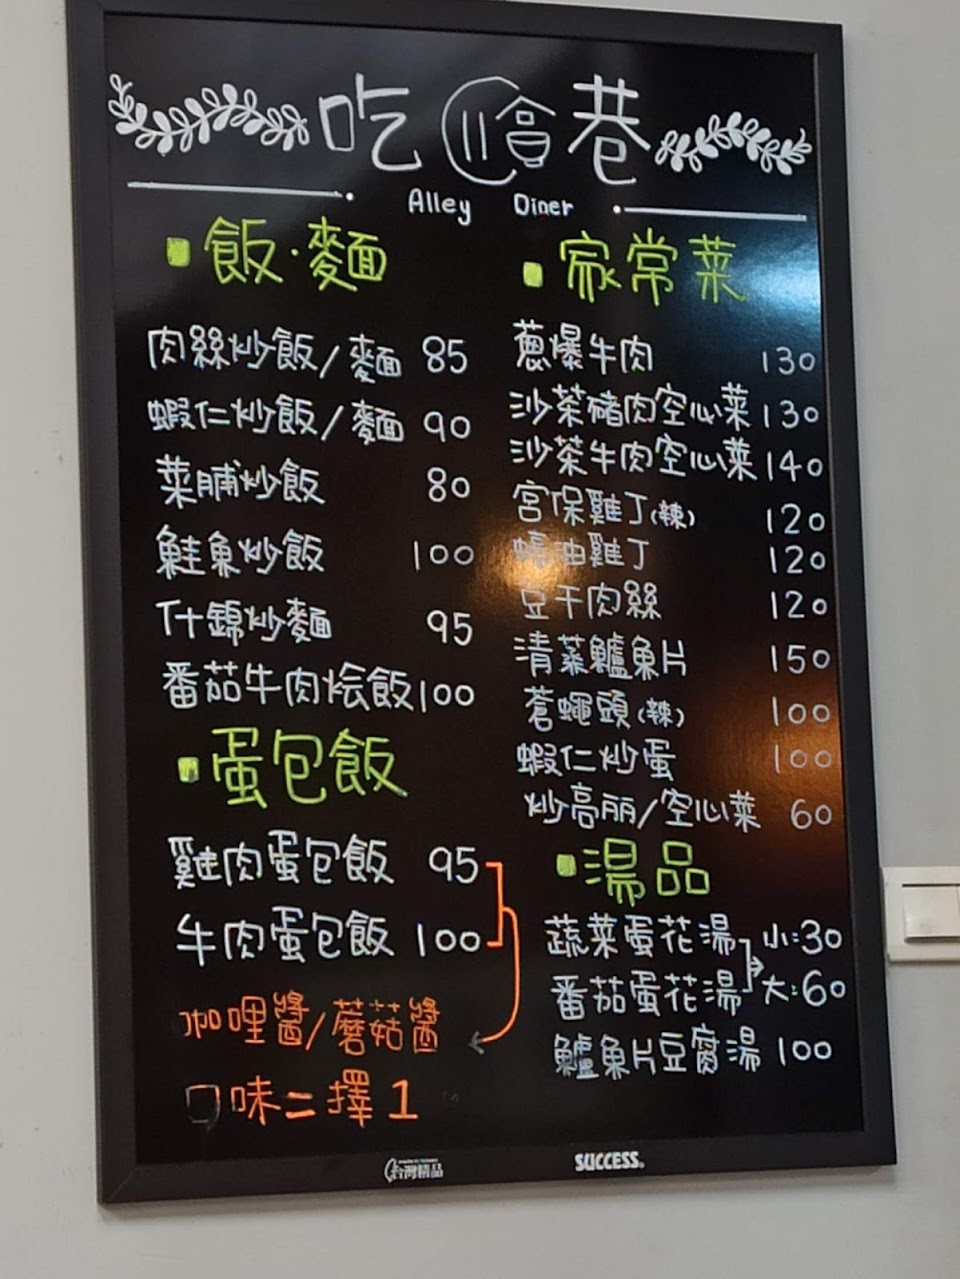 吃飽巷
Alley Diner
飯·麵
肉絲炒飯/麵 85
蝦仁炒飯/麵 90
菜脯炒飯 80
鮭魚炒飯 100
什錦炒麵 95
番茄牛肉烩飯 100
蛋包飯
雞肉蛋包飯 95
牛肉蛋包飯 100
咖哩醬/蘑菇醬
口味二擇1
家常菜
蔥爆牛肉 130
沙茶豬肉空心菜 130
沙茶牛肉空心菜 140
宮保雞丁(辣) 120
蠔油雞丁 120
豆干肉絲 120
清蒸鱸魚片 150
蒼蠅頭(辣) 100
蝦仁炒蛋 100
炒高丽/空心菜 60
湯品
蔬菜蛋花湯 小:30
番茄蛋花湯 大:60
鱸魚片豆腐湯 100
台灣精品
SUCCESS